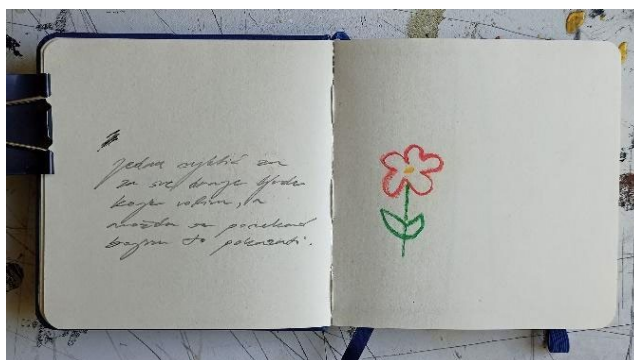 Jedan cvjetić za
za sve drage ljude
koje volim, a
možda se ponekad
bojim to pokazati.